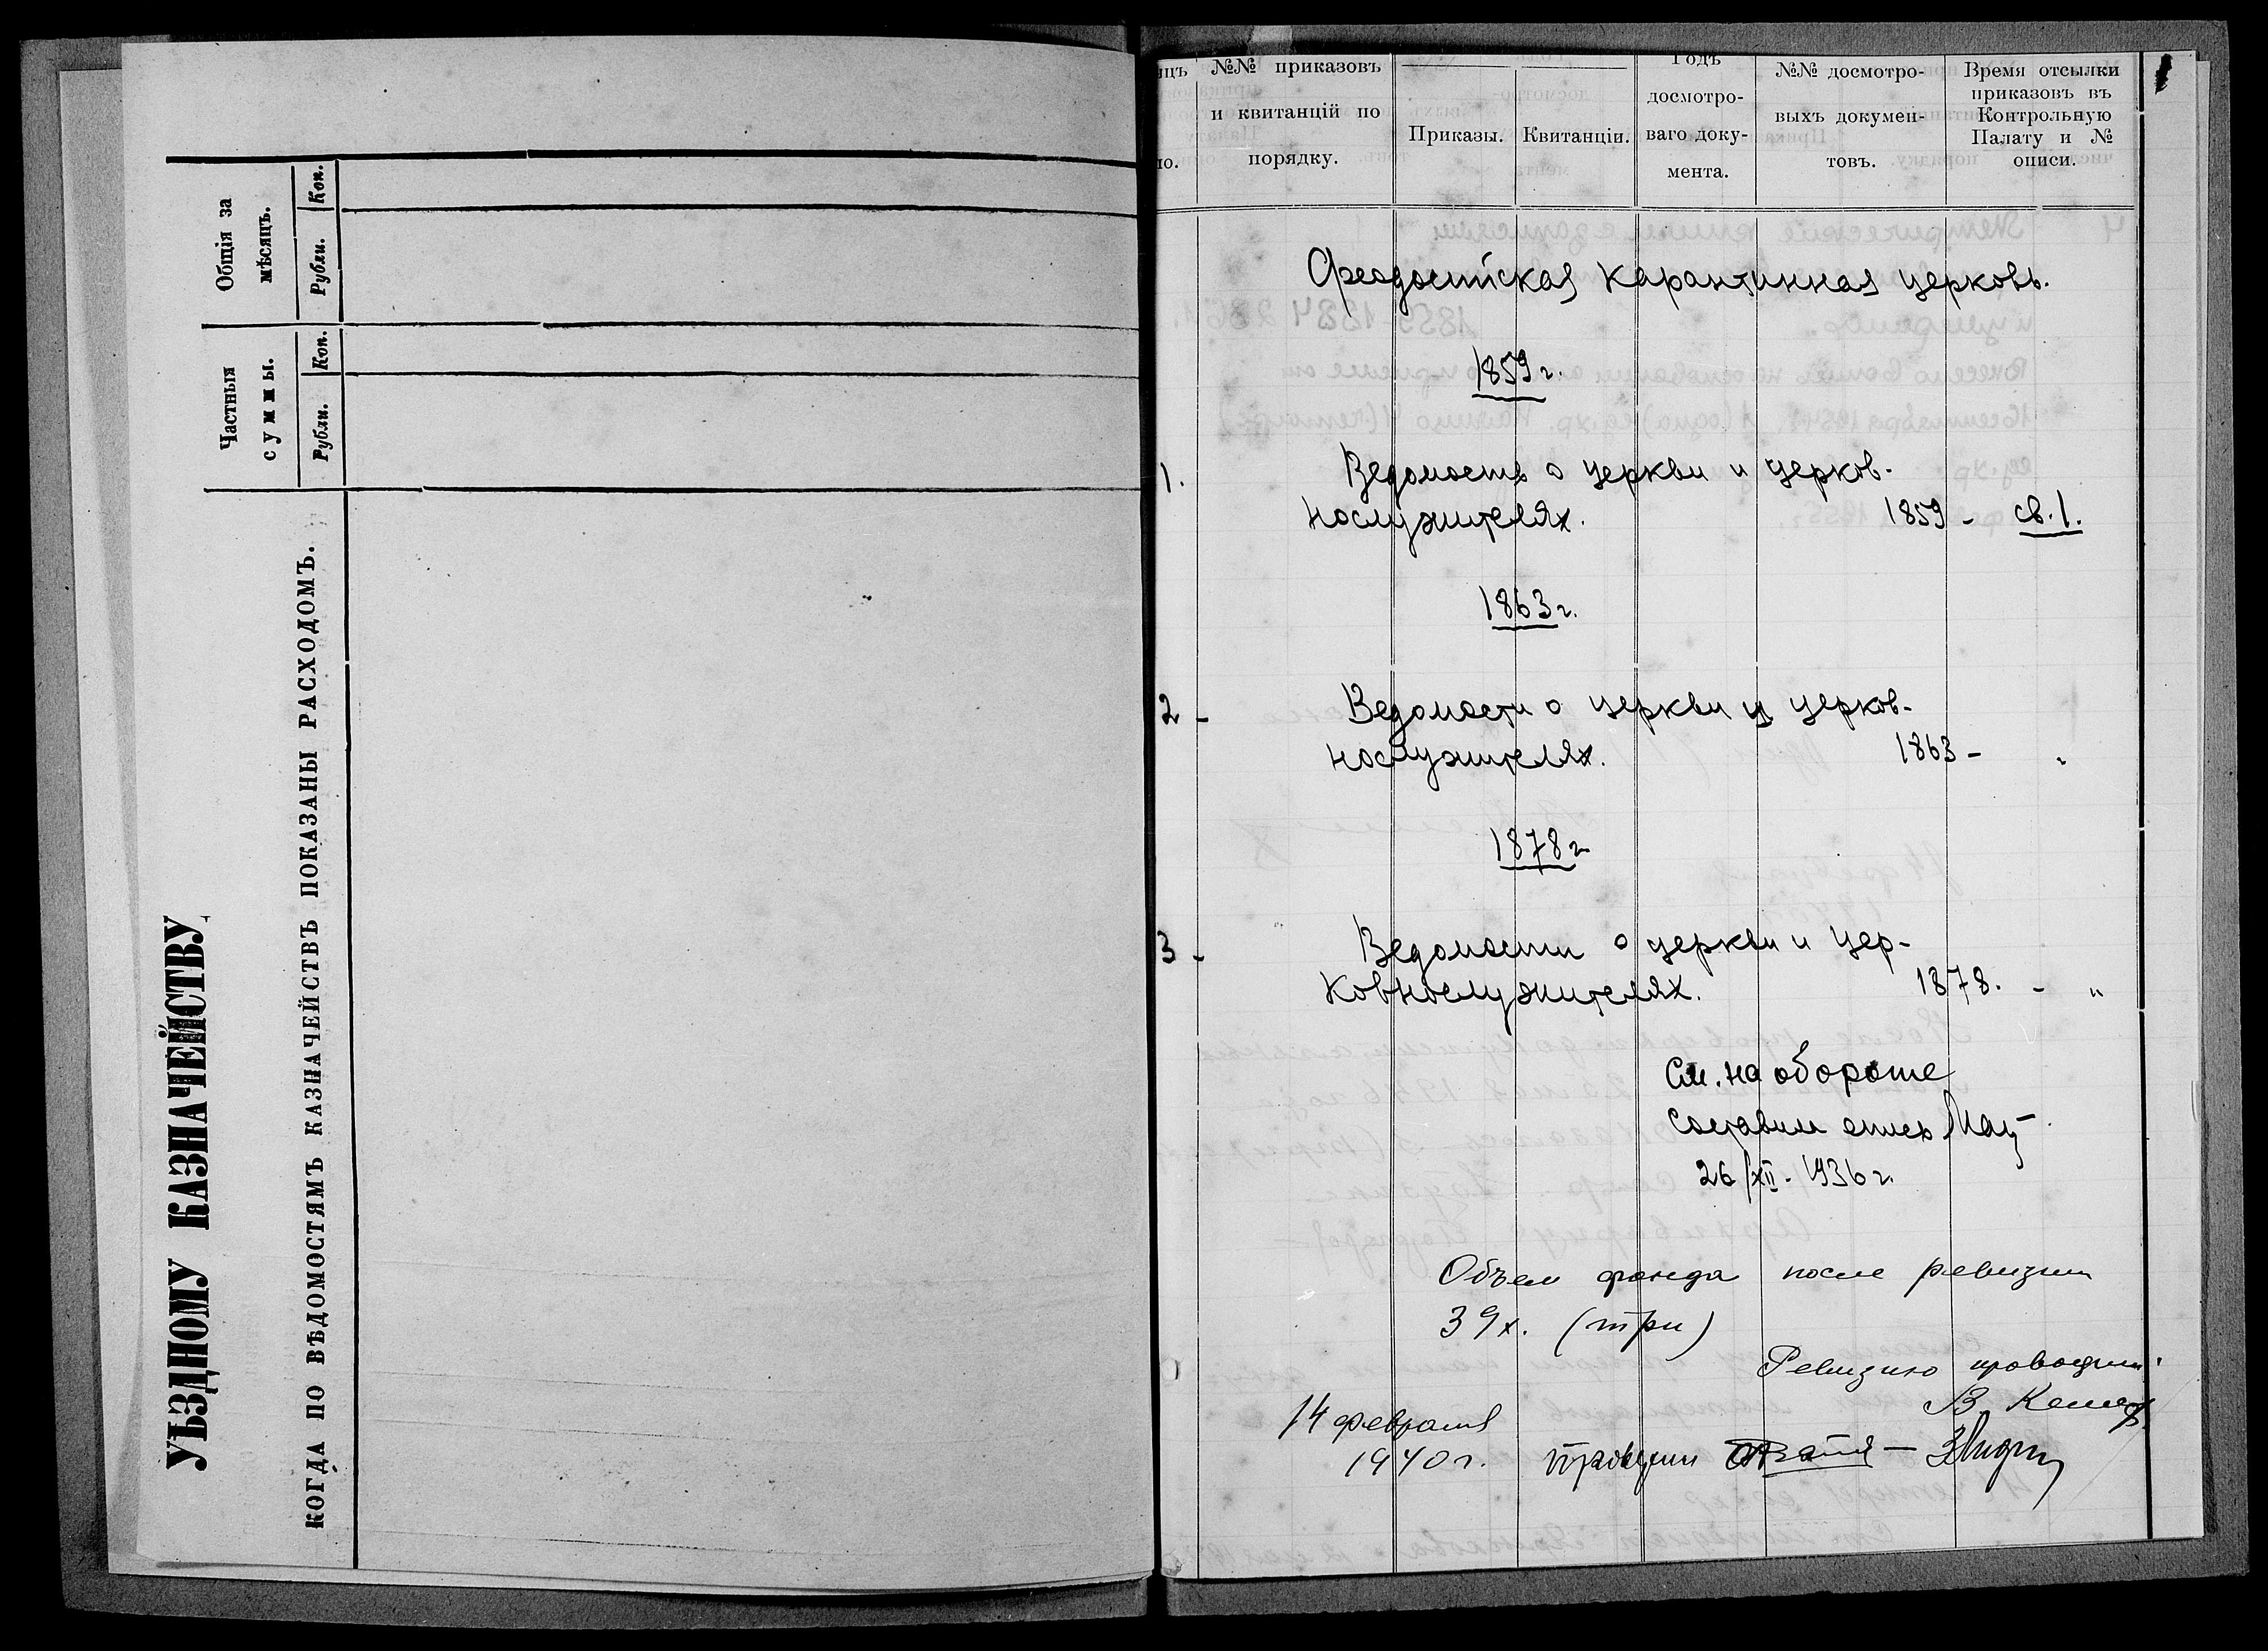 УѢЗДНОМУ КАЗНАЧЕЙСТВУ
КОГДА ПО ВѢДОМОСТЯМЪ КАЗНАЧЕЙСТВЪ ПОКАЗАНЫ РАСХОДОМЪ.
Частныя суммы.
Рубли. Коп.
Общія за мѣсяцъ.
Рубли. Коп.
№№ приказовъ
и квитанцій по
порядку.
Приказы. Квитанціи.
Годъ
досмотро-
ваго доку-
мента.
№№ досмотро-
выхъ докумен-
товъ.
Время отсылки
приказовъ въ
Контрольную
Палату и №
описи.
Феодосийская Карантинная церковь.
1859 г.
1. Ведомость о церкви и церков-
нослужителях. 1859 - св. 1.
1863 г.
2 - Ведомости о церкви и церков-
нослужителях. 1863 - "
1878 г
3 - Ведомости о церкви и цер-
ковнослужителях. 1878. - "
См. на обороте
Составил опись
26/XII - 1936 г.
Объем фонда после ревизии
3 9х. (три)
Ревизию проводили:
14 февраля
1940 г.